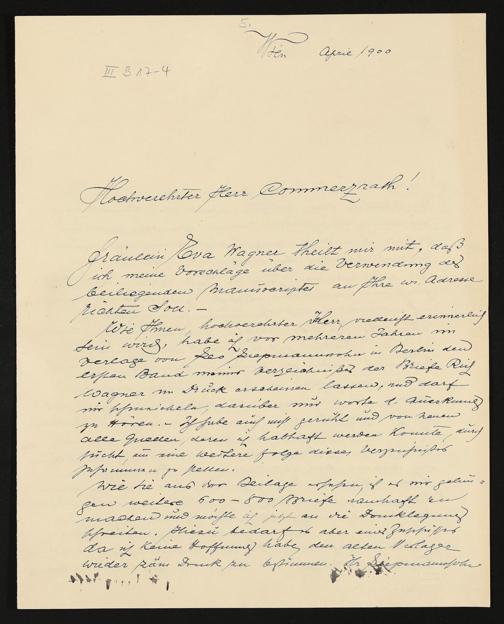 5.
Wien April 1900
III B 17-4
Hochverehrter Herr Commerzrath!
Fräulein Eva Wagner theilt mir mit, daß
ich meine Vorschläge über die Verwendung des
beiliegenden Manuscriptes an Ihre w. Adresse
richten soll. —
Wie Ihnen, hochverehrter Herr, vielleicht erinnerlich
sein wird, habe ich vor mehreren Jahren im
Verlage von Leo Liepmannssohn in Berlin den
ersten Band meines Verzeichnißes der Briefe Rich
Wagner im Druck erscheinen lassen, und darf
mir schmeicheln, darüber nur Worte d. Anerkennung
zu hören. — Ich habe auch nicht geruht und von neuen
alle Quellen, deren ich habhaft werden konnte, durch
sucht um eine weitere Folge dieses Verzeichnißes
zusammen zu stellen.
Wie Sie aus der Beilage ersehen, ist es mir gelun-
gen weitere 600-800 Briefe namhaft zu
machen und möchte ich jetzt an die Drucklegung
schreiten. Hiezu bedarf es aber eines Zuschußes
da ich keine Hoffnung habe, den alten Verleger
wieder zum Druck zu bestimmen. Hr Liepmannssohn